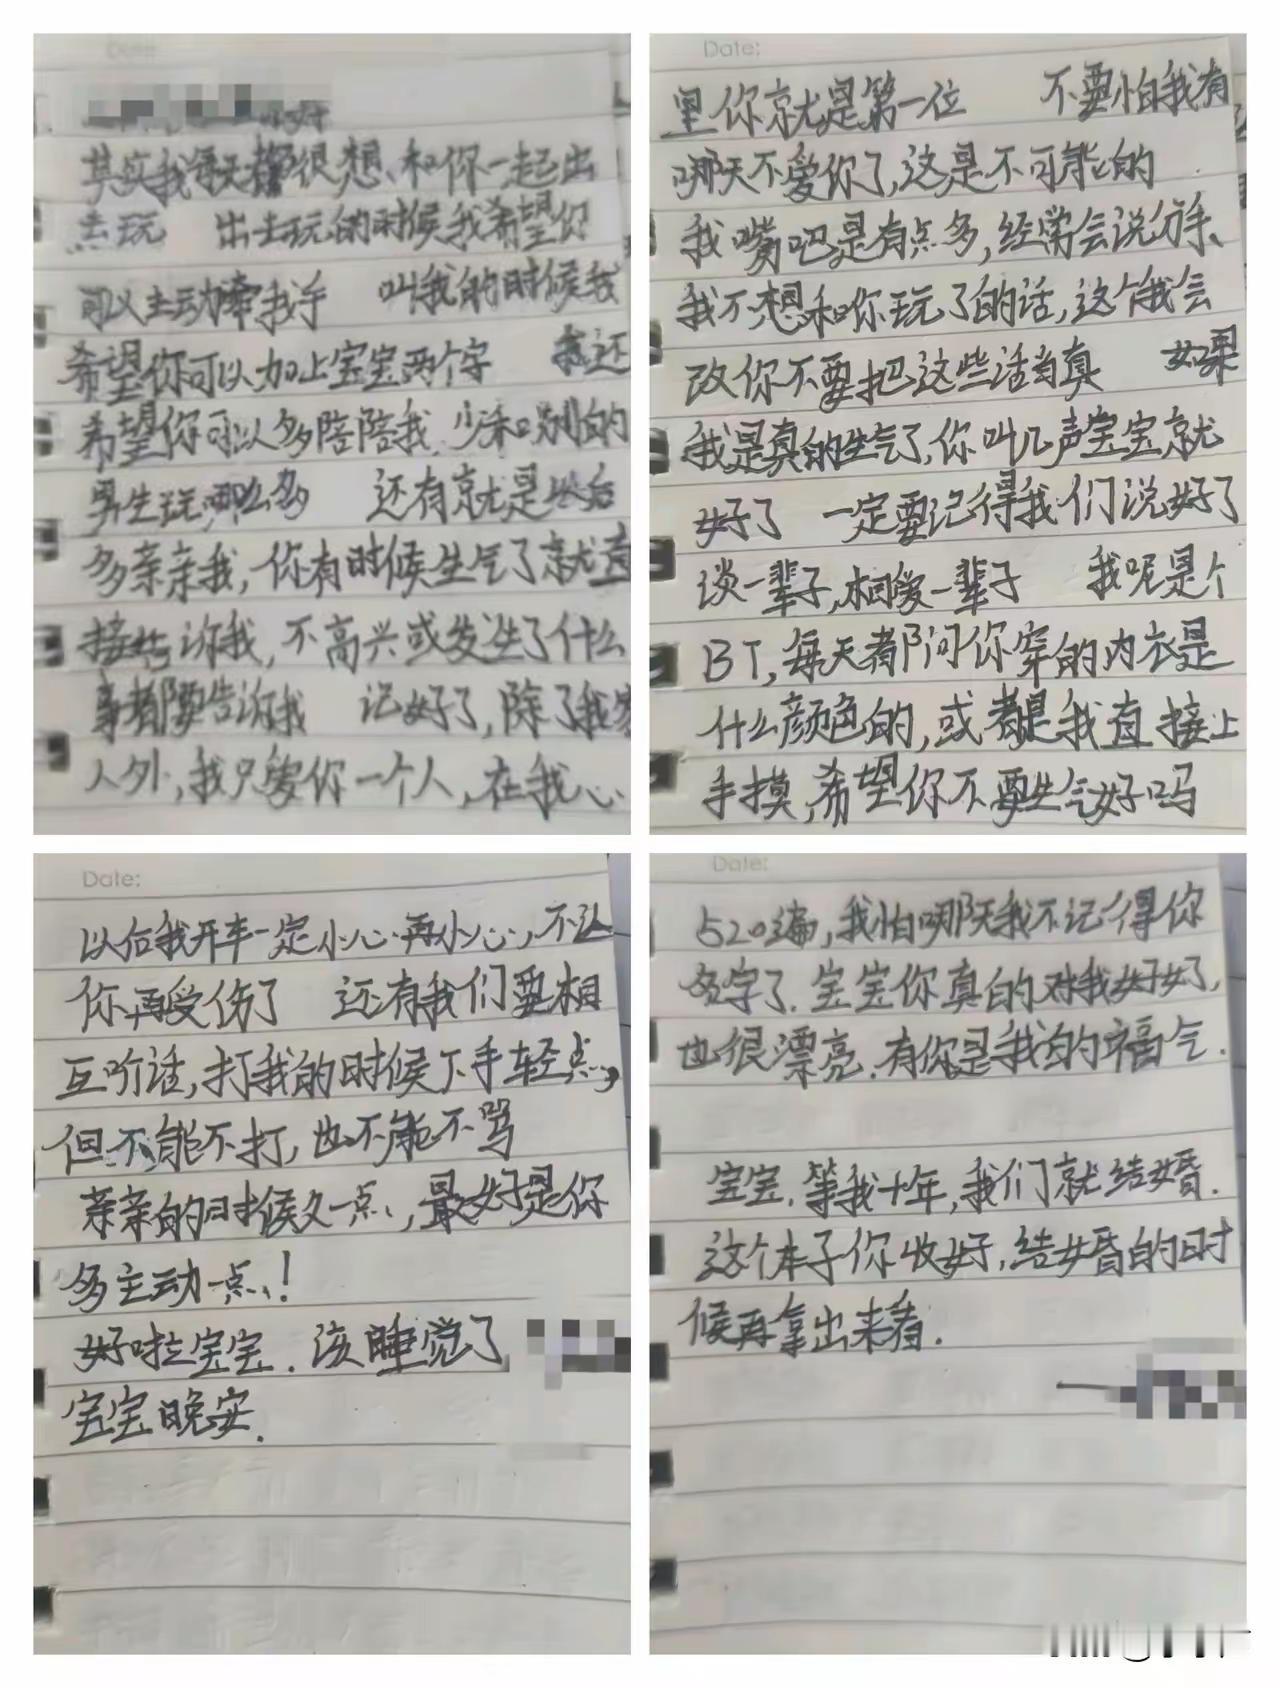 Date:
其实我每天都很想和你一起出
去玩 出去玩的时候我希望你
可以主动牵我手 叫我的时候我
希望你可以加上宝宝两个字 我还
希望你可以多陪陪我,少和别的
男生玩那么多 还有就是以后
多亲亲我,你有时候生气了就直
接告诉我,不高兴或发生了什么
事都要告诉我 记好了,除了我家
人外,我只爱你一个人,在我心
Date:
里你就是第一位 不要怕我有
哪天不爱你了,这是不可能的
我嘴吧是有点多,经常会说分手、
我不想和你玩了的话,这个我会
改你不要把这些话当真 如果
我是真的生气了,你叫几声宝宝就
好了 一定要记得我们说好了
谈一辈子,相爱一辈子 我呢是个
BT,每天都问你穿的内衣是
什么颜色的,或者是我直接上
手摸,希望你不要生气好吗
Date:
以后我开车一定小心再小心,不让
你再受伤了 还有我们要相
互听话,打我的时候下手轻点,
但不能不打,也不能不骂
亲亲的时候久一点,最好是你
多主动一点!
好啦宝宝.该睡觉了
宝宝晚安.
Date:
520遍,我怕哪天我不记得你
名字了.宝宝你真的对我好好,
也很漂亮.有你是我的福气.
宝宝.等我十年,我们就结婚.
这个本子你收好,结婚的时
候再拿出来看.